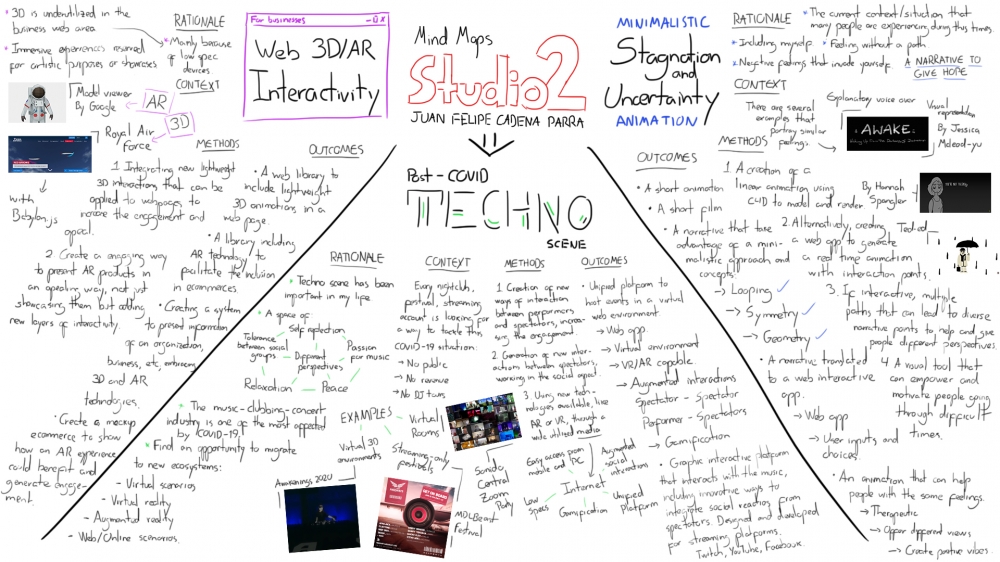 Mind Maps
Studio2
JUAN FELIPE CADENA PARRA
For businesses
Web 3D/AR
Interactivity
RATIONALE
* 3D is underutilized in the
business web area
* Mainly because
of low spec
devices
* Immersive experiences reserved
for artistic purposes or showcases
CONTEXT
AR
Model viewer
By Google
3D
Royal Air
Force
with
Babylon.js
METHODS
1. Integrating new lightweight
3D interactions that can be
applied to webpages to
increase the engagement and
appeal.
2. Create a engaging way
to present AR products in
an appealing way, not just
showcasing them but adding
new layers of interactivity.
OUTCOMES
• A web library to
include lightweight
3D animations in a
web page.
• A library including
AR technology to
facilitate the inclusion
in ecommerces.
• Creating a system
to present information
of an organization,
business, etc, embracing
3D and AR
technologies.
• Create a mockup
ecommerce to show
how an AR experience
could benefit and
generate engage-
ment.
Post-COVID
TECHNO
SCENE
RATIONALE
• Techno scene has been
important in my life
• A space of:
Self reflection
Tolerance
between social
groups
Different
perspectives
Passion
for music
Relaxation
Peace
* The music-clubbing-concert
industry is one of the most affected
by COVID-19!
* Find an opportunity to migrate
to new ecosystems:
- Virtual scenarios
- Virtual reality
- Augmented reality
- Web/Online scenarios.
CONTEXT
Every nightclub,
festival, streaming
account is looking for
a way to tackle this
COVID-19 situation:
→ No public
→ No revenue
→ No DJ tours
EXAMPLES
Virtual
Rooms
Virtual 3D
environments
Streaming-only
festivals
Awakenings 2020
MDLBeast
Festival
Sonido
Central
Zoom
Party
METHODS
1. Creation of new
ways of interaction
between performers
and spectators, increa-
sing the engagement.
2. Generation of new inter-
actions between spectators,
working in the social aspect.
3. Using new tech-
nologies available, like
AR or VR, through a
web utilized media
Easy access from
mobile and PC
Augmented
social
interactions
Internet
Low
specs
Gamification
Unified
Platform
OUTCOMES
• Unified platform to
host events in a virtual
web environment
→ Web app.
→ Virtual environment
→ VR/AR capable
→ Augmented interactions
Spectator - Spectator
Performer - Spectators
→ Gamification
• Graphic interactive platform
that interacts with the music,
including innovative ways to
integrate social reactions from
spectators. Designed and developed
for streaming platforms.
Twitch, YouTube, Facebook.
MINIMALISTIC
Stagnation
and
Uncertainty
ANIMATION
RATIONALE
* The current context/situation that
many people are experiencing during this times.
* Including myself
* Feeling without a path.
* Negative feelings that invade yourself.
A NARRATIVE TO
GIVE HOPE
CONTEXT
There are several
examples that
portray similar
feelings
Explanatory voice over
AWAKE
Visual
representation
By Jessica
Mcleod-yu
By Hannah
Spangler
Ted-ed
METHODS
1. A creation of a
linear animation using
C4D to model and render.
2. Alternatively, creating
a web app to generate
a real time animation
with interaction points.
3. If interactive, multiple
paths that can lead to diverse
narrative points to help and give
people different perspectives.
4. A visual tool that
can empower and
motivate people going
through difficult
times.
OUTCOMES
• A short animation
• A short film
• A narrative that take
advantage of a mini-
malistic approach and
concepts:
→ Looping
→ Symmetry
→ Geometry
• A narrative translated
to a web interactive
app.
→ Web app
→ User inputs and
choices.
• An animation that can
help people with the same feelings.
→ Therapeutic
→ Offer different views
→ Create positive vibes.